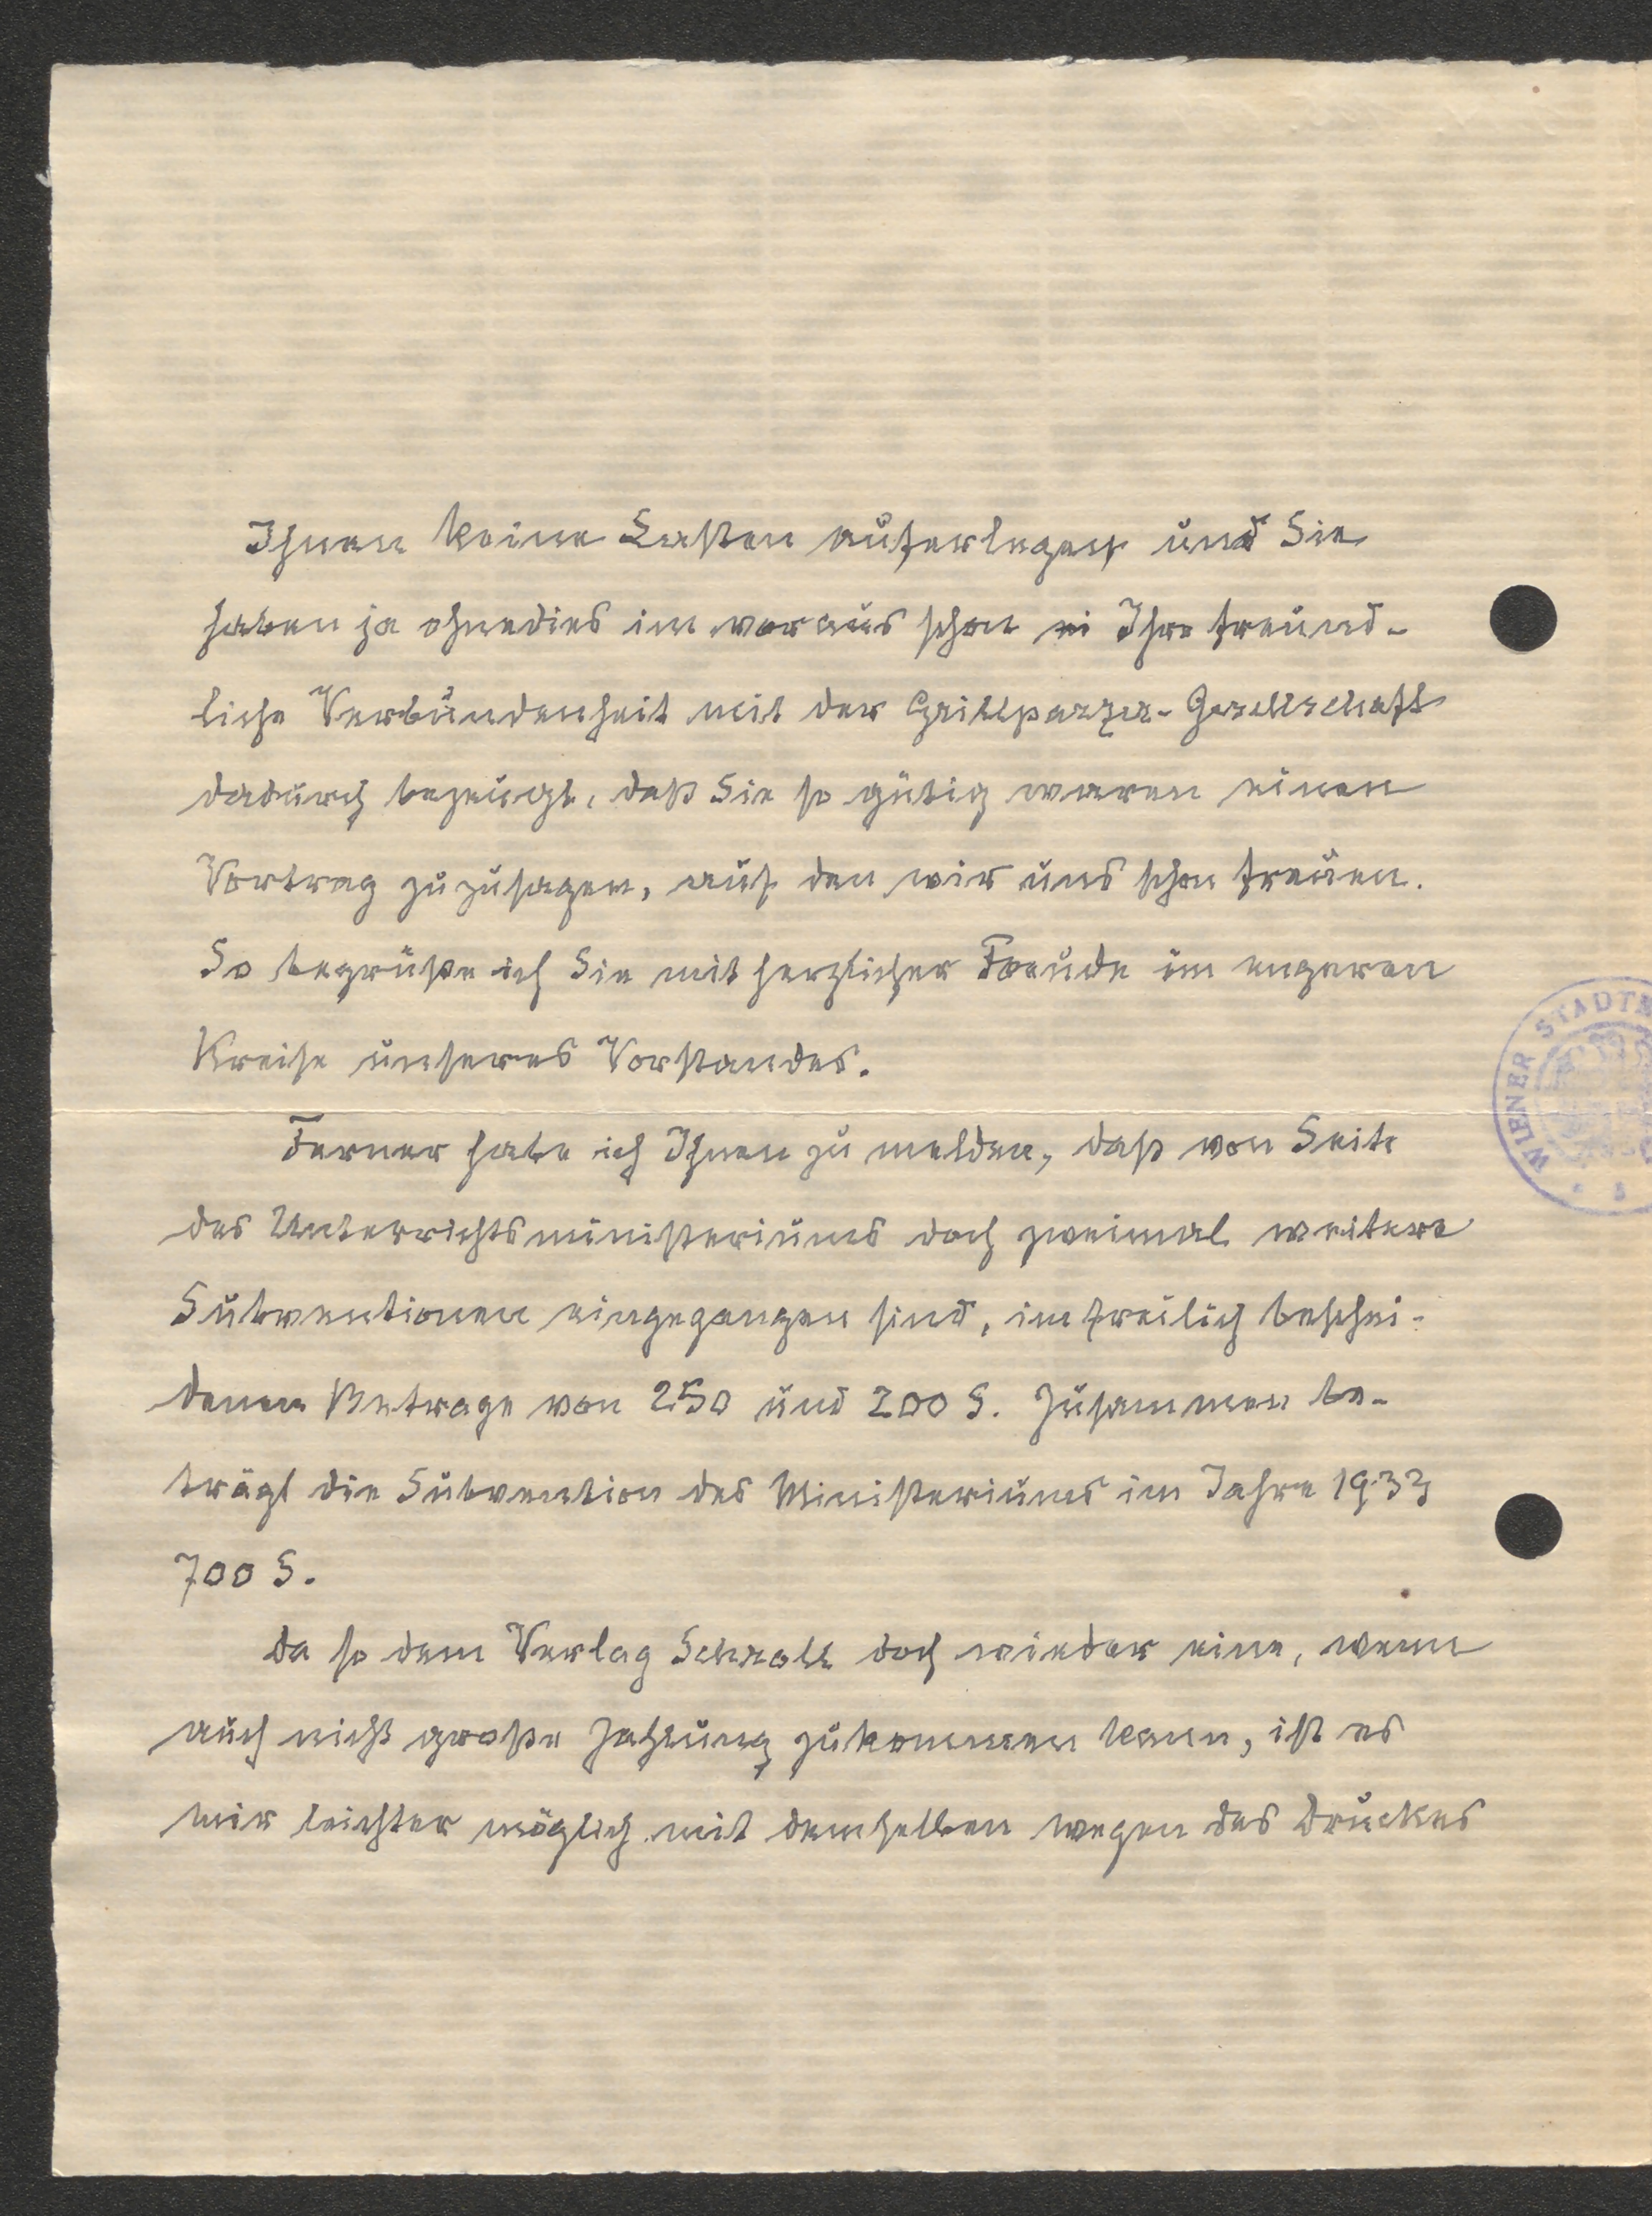 Ihnen keine Lasten auferlegen und Sie
haben ja ohnedies im voraus schon Ihre freund-
liche Verbundenheit mit der Grillparzer-Gesellschaft
dadurch bezeugt, daß Sie so gütig waren einen
Vortrag zuzusagen, auf den wir uns schon freuen.
So begrüße ich Sie mit herzlicher Freude im engeren
Kreise unseres Vorstandes.
Ferner habe ich Ihnen zu melden, daß von Seite
des Unterrichtsministeriums doch zweimal weitere
Subventionen eingegangen sind, im freilich beschei-
denen Betrage von 250 und 200 S. Zusammen be-
trägt die Subvention des Ministeriums im Jahre 1933
700 S.
Da so dem Verlag Schroll doch wieder eine, wenn
auch nicht große Zahlung zukommen kann, ist es
mir leichter möglich mit demselben wegen des Druckes
WIENER STADT